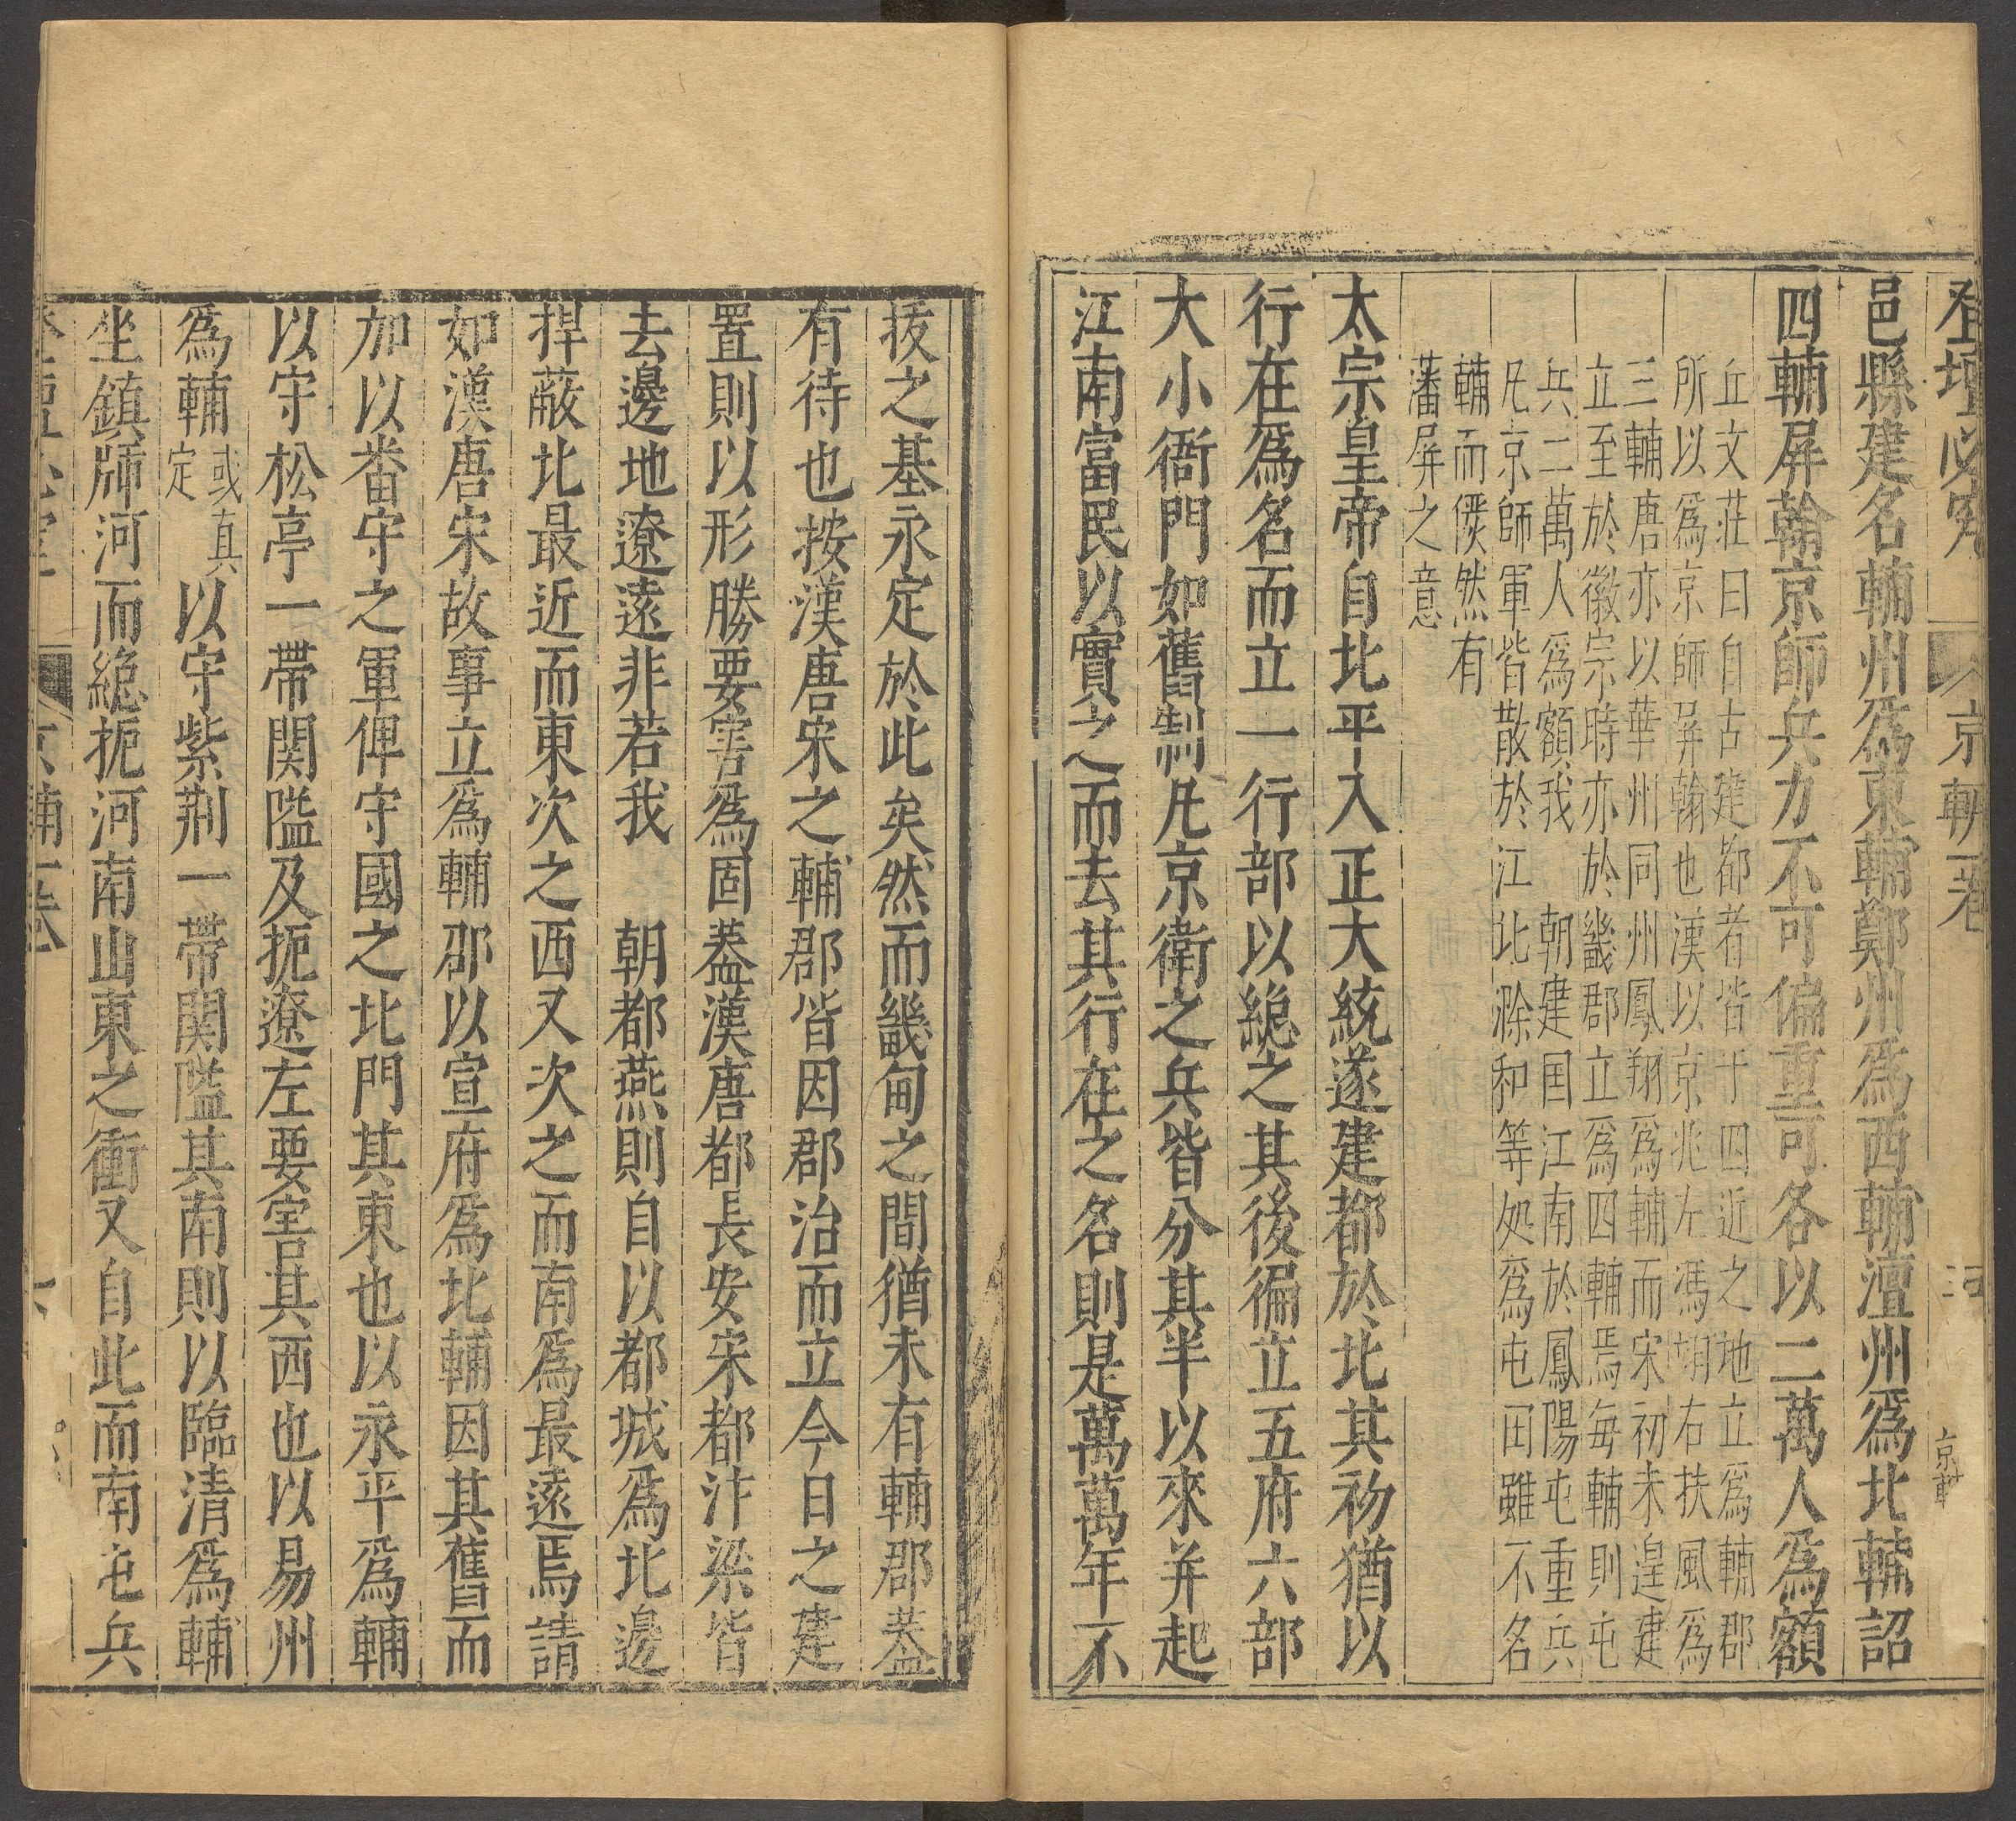 登壇必究 京輔一卷
邑縣建名輔州爲東輔鄭州爲西輔澶州爲北輔詔
四輔屏翰京師兵力不可偏重可各以二萬人爲額
丘文莊曰自古建都者皆于四近之地立爲輔郡
所以爲京師屏翰也漢以京兆左馮翊右扶風爲
三輔唐亦以華州同州鳳翔爲輔而宋初未遑建
立至於徽宗時亦於畿郡立爲四輔焉每輔則屯
兵二萬人爲額我 朝建国江南於鳳陽屯重兵
凡京師軍皆散於江北滁和等処爲屯田雖不名
輔而儼然有
藩屏之意
太宗皇帝自北平入正大統遂建都於北其初猶以
行在爲名而立一行部以緫之其後徧立五府六部
大小衙門如舊制凡京衛之兵皆分其半以來并起
江南富民以實之而去其行在之名則是萬萬年不
拔之基永定於此矣然而畿甸之間猶未有輔郡蓋
有待也按漢唐宋之輔郡皆因郡治而立今日之建
置則以形勝要害爲固蓋漢唐都長安宋都汴梁皆
去邊地遼遠非若我 朝都燕則自以都城爲北邊
捍蔽北最近而東次之西又次之而南爲最遠焉請
如漢唐宋故事立爲輔郡以宣府爲北輔因其舊而
加以畨守之軍俾守國之北門其東也以永平爲輔
以守松亭一帶関隘及扼遼左要害其西也以易州
爲輔或真定以守紫荆一帶関隘其南則以臨清爲輔
坐鎮牌河而緫扼河南山東之衝又自此而南屯兵